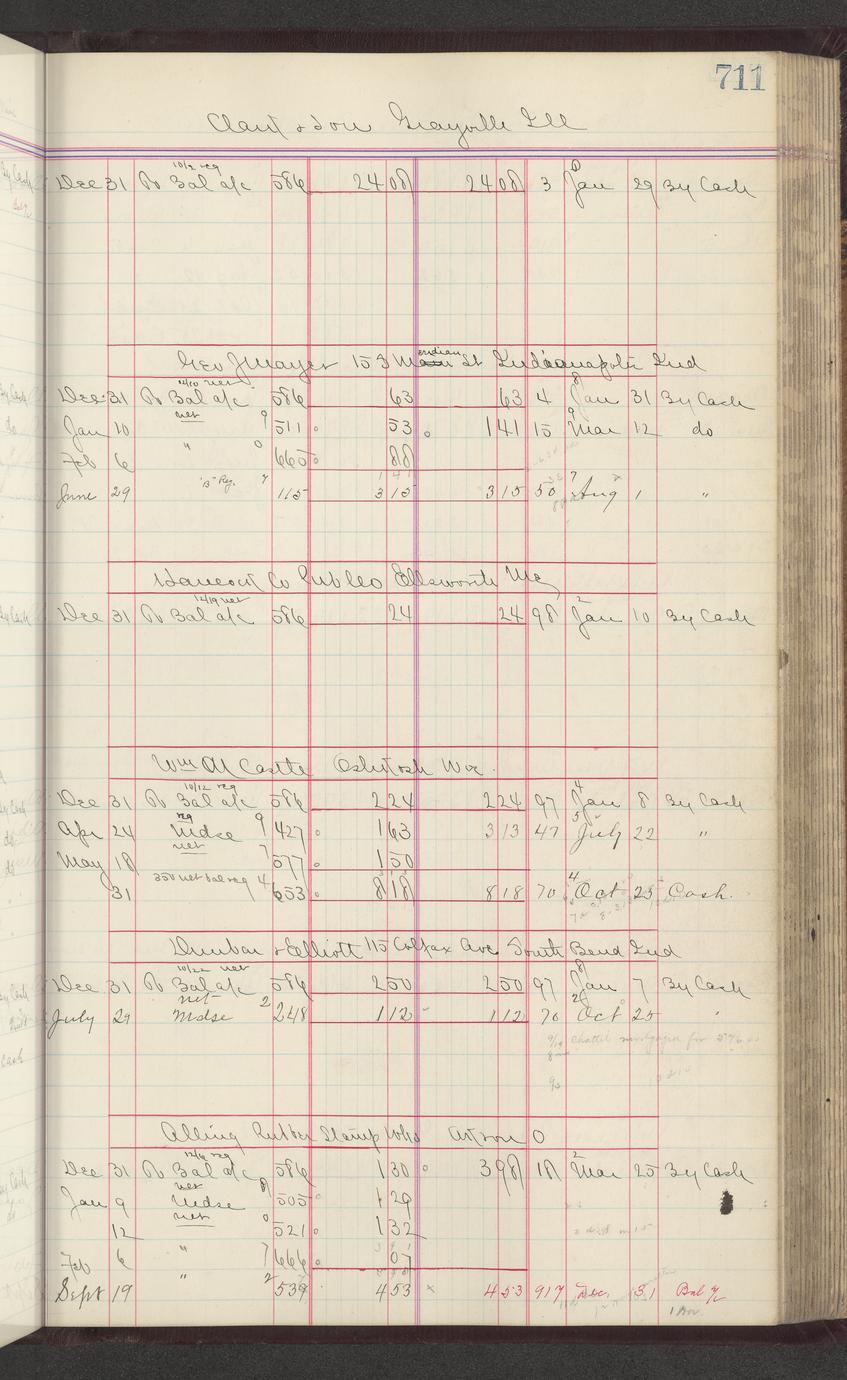 711
Grayville Ill
10/2 reg
Dec 31 To Bal a/c 586 24 08 24 08 3 Jan 29 By Cash
Geo J Mayer 153 Meridian St Indianapolis Ind
12/10 net
Dec 31 To Bal a/c 586 63 63 4 Jan 31 By Cash
net 9
Jan 10 511 53 1 41 15 Mar 12 do
Feb 6 " 665 88
June 29 "B" Reg. 7 115 3 15 3 15 50 Aug 1 "
Hancock Co Pub Co Ellsworth Me
12/19 net
Dec 31 To Bal a/c 586 24 24 98 Jan 10 By Cash
Wm M Castle Oshkosh Wis.
10/12 reg
Dec 31 To Bal a/c 586 2 24 2 24 97 Jan 8 By Cash
reg 9
Apr 24 Mdse 427 1 63 3 13 47 July 22 "
net 7
May 18 577 1 50
31 350 net bal reg 4 653 8 18 8 18 70 Oct 25 Cash.
Dunbar & Elliott 115 Colfax Ave South Bend Ind
10/22 net
Dec 31 To Bal a/c 586 2 50 2 50 97 Jan 7 By Cash
net 2
July 29 Mdse 248 1 12 1 12 70 Oct 25 "
chattel mortgage for
Alling Rubber Stamp Wks Akron O
12/4 reg
Dec 31 To Bal a/c 586 1 30 3 98 18 Mar 25 By Cash
net 8
Jan 9 Mdse 505 1 29
net 0
12 521 1 32
Feb 6 " 7 666 07
Sept 19 " 2 539 4 53 4 53 917 Dec. 31 Bal a/c